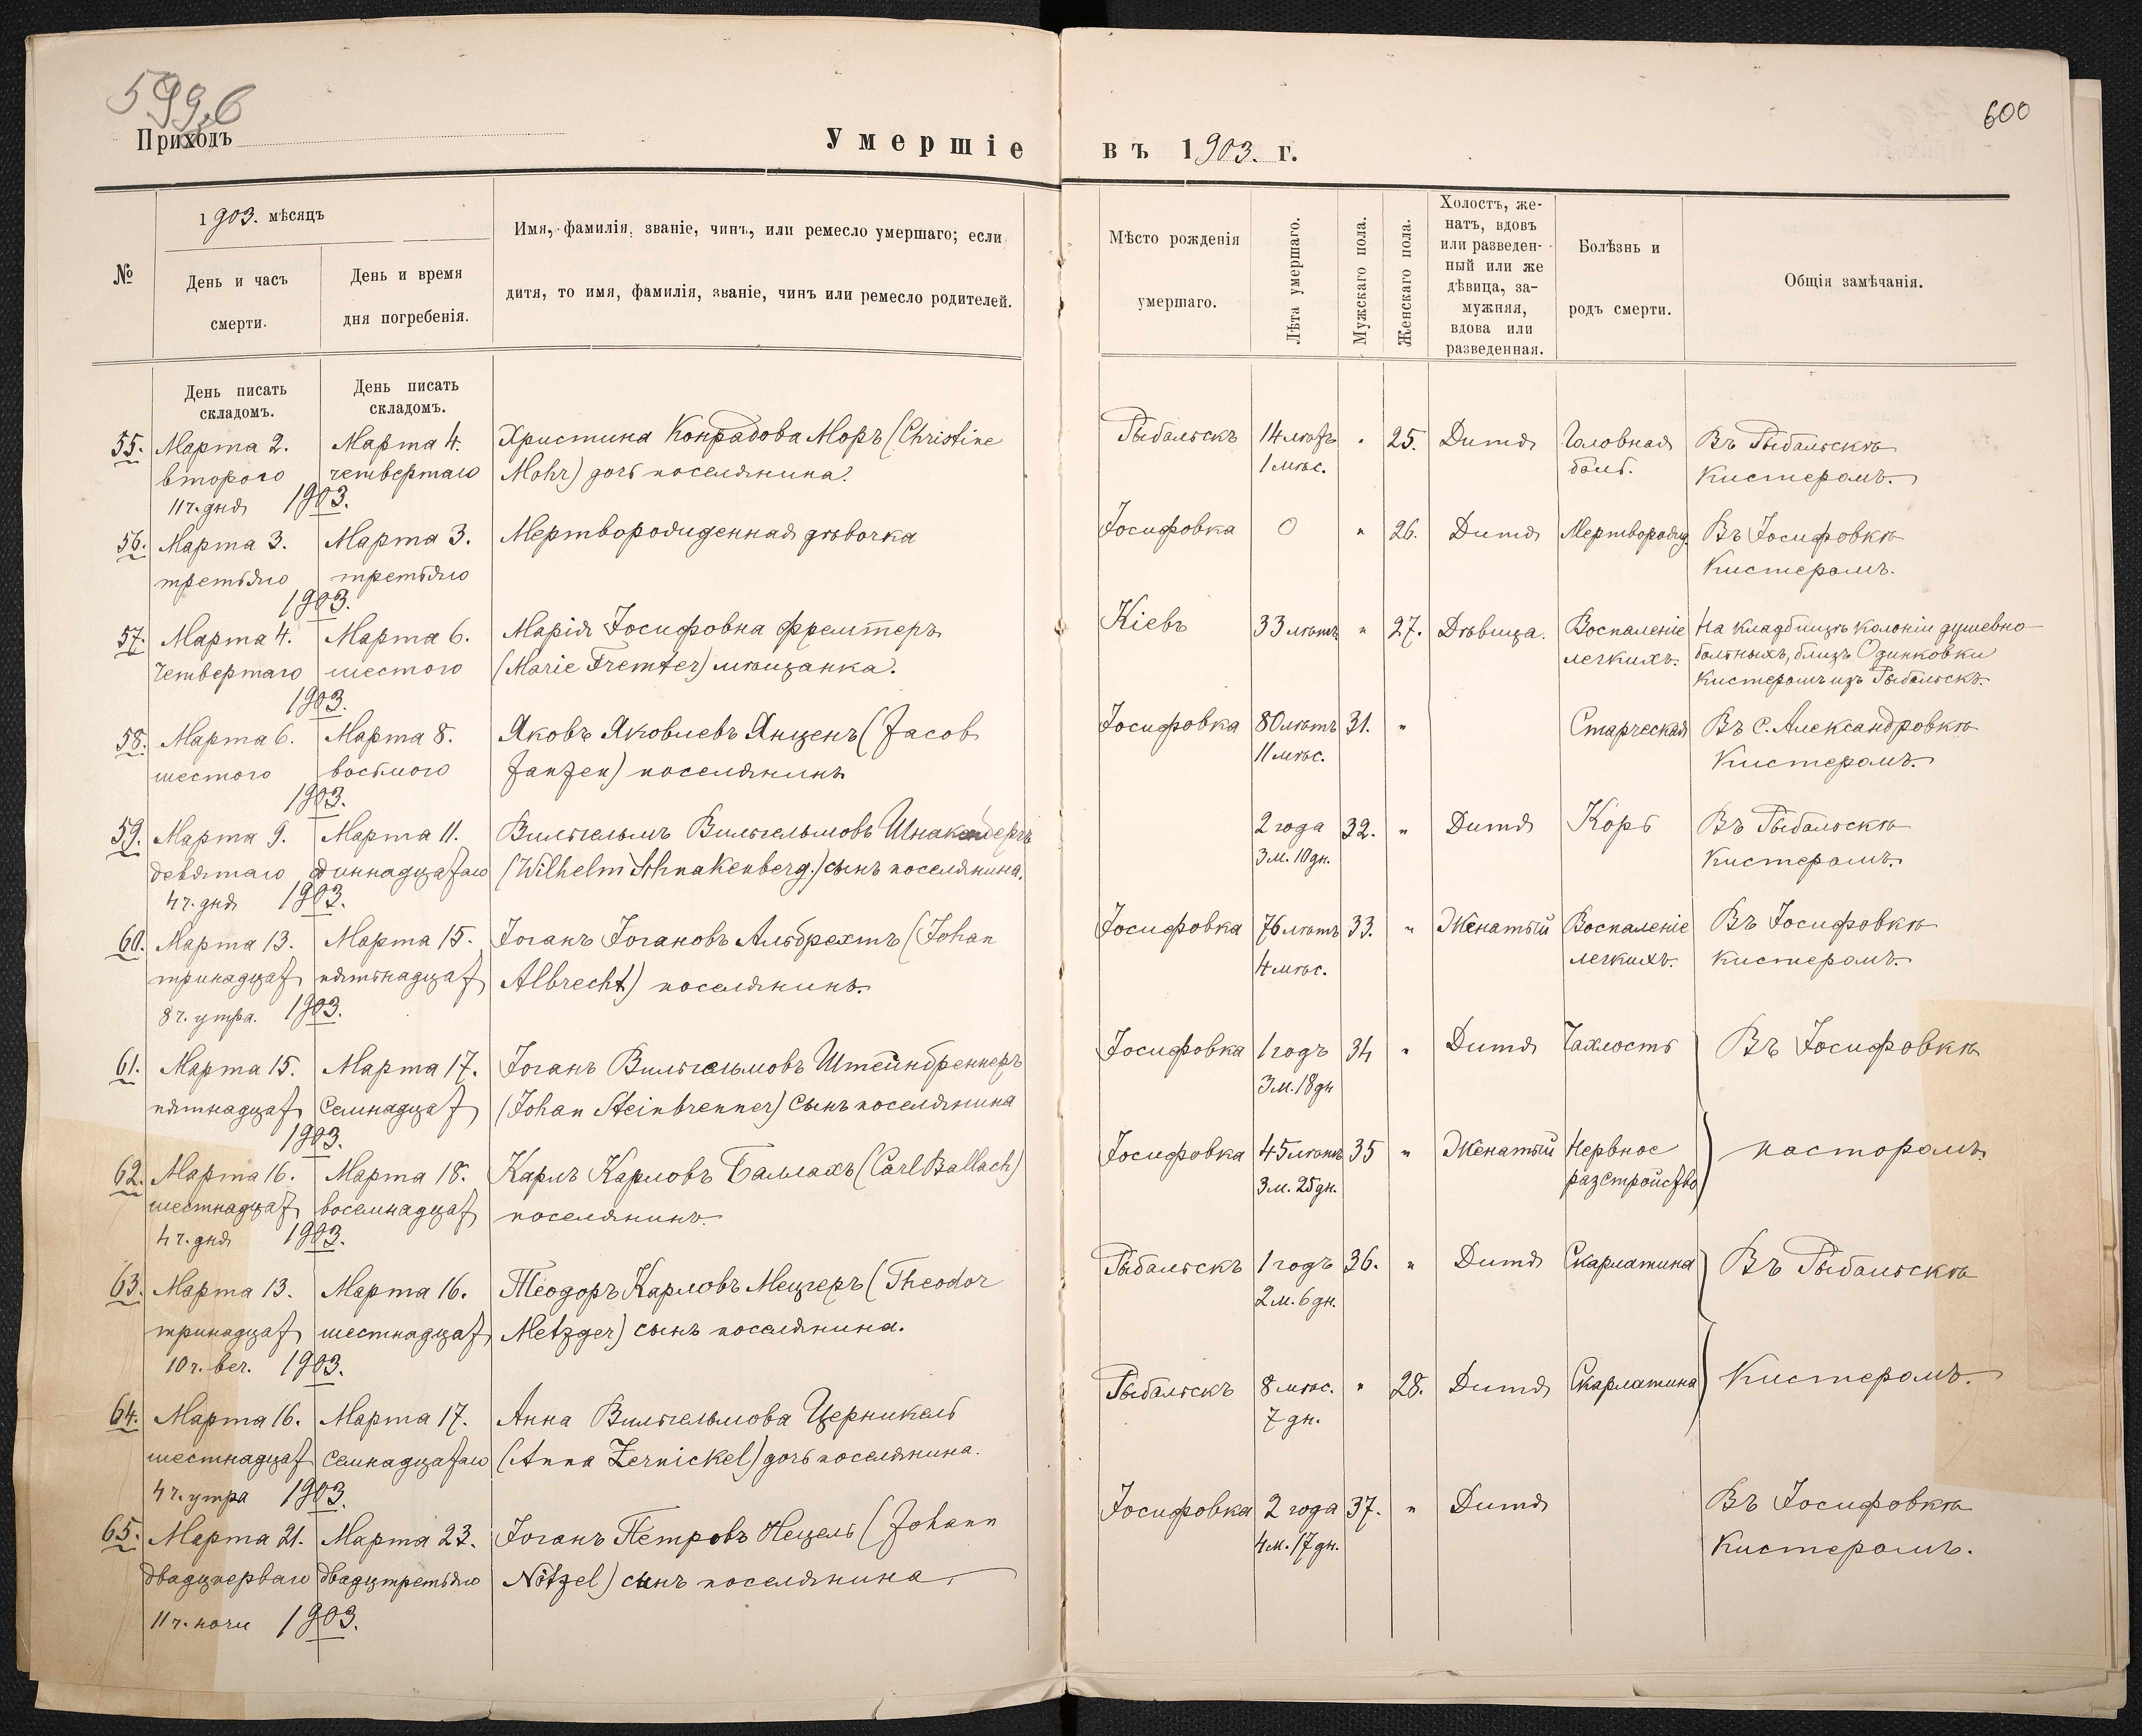 599,б
Приходъ
Умершіе
въ 1903. г.
600
№
1903. мѣсяцъ
День и часъ
смерти.
День и время
дня погребенія.
Имя, фамилія, званіе, чинъ, или ремесло умершаго; если
дитя, то имя, фамилія, званіе, чинъ или ремесло родителей.
Мѣсто рожденія
умершаго.
Лѣта умершаго.
Мужскаго пола.
Женскаго пола.
Холостъ, же-
натъ, вдовъ
или разведен-
ный или же
дѣвица, за-
мужняя,
вдова или
разведенная.
Болѣзнь и
родъ смерти.
Общія замѣчанія.
День писать
складомъ.
День писать
складомъ.
55. Марта 2. Марта 4. Христина Конрадова Моръ (Christine
второго четвертаго Mohr) дочь поселянина.
11 ч. дня 1903.
Рыбальскъ 14 лѣтъ " 25. Дитя Головная Въ Рыбальскѣ
1 мѣс. боль. Кистеромъ.
56. Марта 3. Марта 3. Мертворожденная дѣвочка
третьяго третьяго
1903.
Іосифовка 0 " 26. Дитя Мертворожд. Въ Іосифовкѣ
Кистеромъ.
57. Марта 4. Марта 6. Марія Іосифовна Фремтеръ
Четвертаго шестого (Marie Fremter) мѣщанка.
1903.
Кіевъ 33 лѣтъ " 27. Дѣвица. Воспаленіе На кладбищѣ колоніи душевно
легкихъ. больныхъ, близъ Одинковки
Кистеромъ изъ Рыбальскъ.
58. Марта 6. Марта 8. Яковъ Яковлевъ Янценъ (Jacob
шестого восьмого Janzen) поселянинъ
1903.
Іосифовка 80 лѣтъ 31. " Старческая Въ С. Александровкѣ
11 мѣс. Кистеромъ.
59. Марта 9. Марта 11. Вильгельмъ Вильгельмовъ Шнакенбергъ
девятаго одиннадцатаго (Wilhelm Schnakenberg.) сынъ поселянина.
4 ч. дня 1903.
2 года 32. " Дитя Корь Въ Рыбальскѣ
3 м. 10 дн. Кистеромъ.
60. Марта 13. Марта 15. Іоганъ Іогановъ Альбрехтъ (Johan
тринадцат пятьнадцат Albrecht) поселянинъ.
8 ч. утра. 1903.
Іосифовка 76 лѣтъ 33. " Женатый Воспаленіе Въ Іосифовкѣ
4 мѣс. легкихъ. кистеромъ.
61. Марта 15. Марта 17. Іоганъ Вильгельмовъ Штейнбреннеръ
пятнадцат Семнадцат (Johan Steinbrenner) Сынъ поселянина
1903.
Іосифовка 1 годъ 34 " Дитя Чахлость Въ Іосифовкѣ
3 м. 18 дн
62. Марта 16. Марта 18. Карлъ Карловъ Баллахъ (Carl Ballach)
шестнадцат восемнадцат поселянинъ.
4 ч. дня 1903.
Іосифовка 45 лѣтъ 35 " Женатый Нервное пасторомъ.
3 м. 25 дн. разстройство
63. Марта 13. Марта 16. Теодоръ Карловъ Мецгеръ (Theodor
тринадцат шестнадцат Metzger) сынъ поселянина.
10 ч. веч. 1903.
Рыбальскъ 1 годъ 36. " Дитя Скарлатина Въ Рыбальскѣ
2 м. 6 дн.
64. Марта 16. Марта 17. Анна Вильгельмова Церникель
шестнадцат семнадцатаго (Anna Zernickel) дочь поселянина.
4 ч. утра 1903.
Рыбальскъ 8 мѣс. " 28. Дитя Скарлатина Кистеромъ.
7 дн.
65. Марта 21. Марта 23. Іоганъ Петровъ Нецель (Johann
двадцперваго двадцтретьяго Nötzel) сынъ поселянина
11 ч. ночи 1903.
Іосифовка 2 года 37. " Дитя Въ Іосифовкѣ
4 м. 17 дн. Кистеромъ.